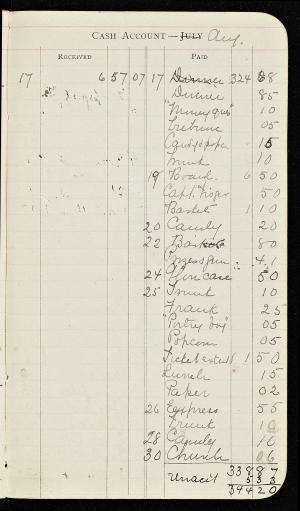 CASH ACCOUNT — JULY Aug.
RECEIVED PAID
17 657 07 17 Dinner 324 68
Dinner 85
"Money qus" 10
Tribune 05
Candy & paper 15
Trunk 10
19 Board 6 50
Capt. 50
Basket 1 10
20 Candy 20
22 80
41
24 case 50
25 Trunk 10
Frank 25
"Poultry" 05
Popcorn 05
Ticket 1 50
Lunch 15
Paper 02
26 Express 55
Trunk 10
28 Candy 10
30 Church 06
338 87
Unacct 5 33
344 20